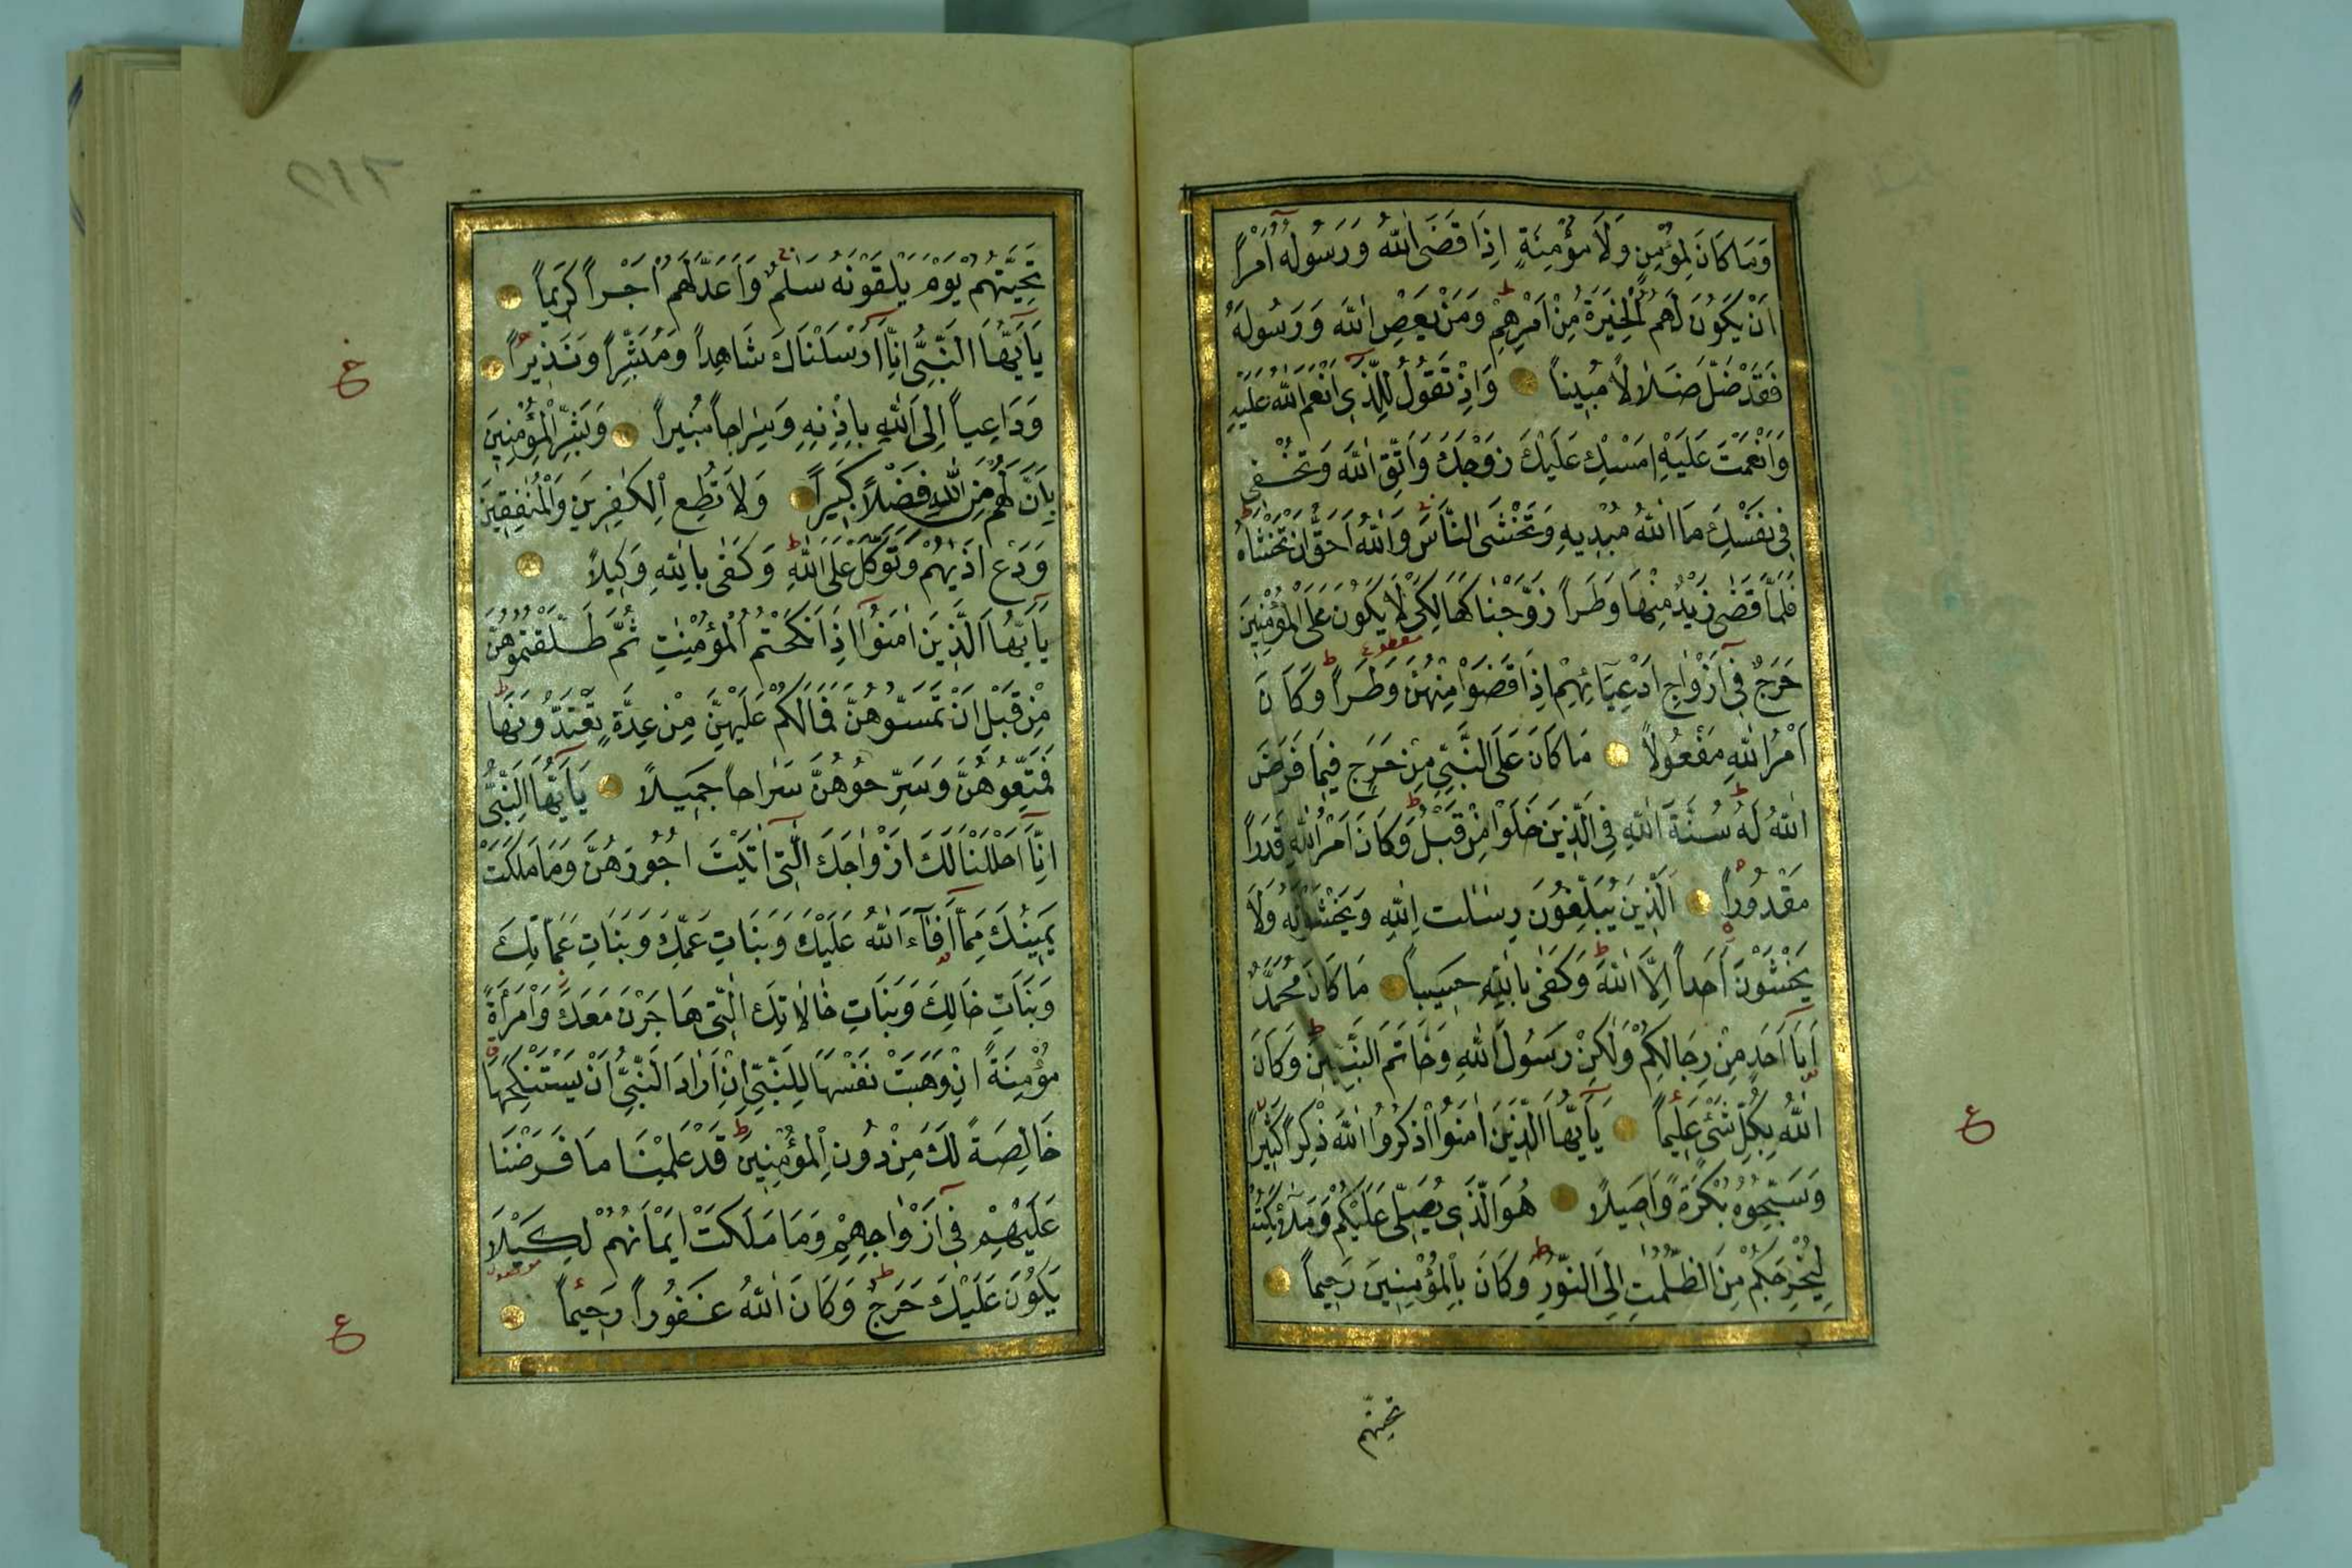 وَمَا كَانَ لِمُؤْمِنٍ وَلَا مُؤْمِنَةٍ اِذَا قَضَى اللّٰهُ وَرَسُولُهُ اَمْراً
اَنْ يَكُونَ لَهُمُ الْخِيَرَةُ مِنْ اَمْرِهِمْ وَمَنْ يَعْصِ اللّٰهَ وَرَسُولَهُ
فَقَدْ ضَلَّ ضَلَالاً مُبِيناً وَاِذْ تَقُولُ لِلَّذِى اَنْعَمَ اللّٰهُ عَلَيْهِ
وَاَنْعَمْتَ عَلَيْهِ اَمْسِكْ عَلَيْكَ زَوْجَكَ وَاتَّقِ اللّٰهَ وَتُخْفِى
فِى نَفْسِكَ مَا اللّٰهُ مُبْدِيهِ وَتَخْشَى النَّاسَ وَاللّٰهُ اَحَقُّ اَنْ تَخْشٰاهُ
فَلَمَّا قَضٰى زَيْدٌ مِنْهَا وَطَراً زَوَّجْنَاكَهَا لِكَىْ لَا يَكُونَ عَلَى الْمُؤْمِنِينَ
حَرَجٌ فِى اَزْوَاجِ اَدْعِيَائِهِمْ اِذَا قَضَوْا مِنْهُنَّ وَطَراً وَكَانَ
اَمْرُ اللّٰهِ مَفْعُولاً مَا كَانَ عَلَى النَّبِىِّ مِنْ حَرَجٍ فِيمَا فَرَضَ
اللّٰهُ لَهُ سُنَّةَ اللّٰهِ فِى الَّذِينَ خَلَوْا مِنْ قَبْلُ وَكَانَ اَمْرُ اللّٰهِ قَدَراً
مَقْدُوراً اَلَّذِينَ يُبَلِّغُونَ رِسٰلٰتِ اللّٰهِ وَيَخْشَوْنَهُ وَلَا
يَخْشَوْنَ اَحَداً اِلَّا اللّٰهَ وَكَفٰى بِاللّٰهِ حَسِيباً مَا كَانَ مُحَمَّدٌ
اَبَا اَحَدٍ مِنْ رِجَالِكُمْ وَلٰكِنْ رَسُولَ اللّٰهِ وَخَاتَمَ النَّبِيِّينَ وَكَانَ
اللّٰهُ بِكُلِّ شَىْءٍ عَلِيماً يَا اَيُّهَا الَّذِينَ اٰمَنُوا اذْكُرُوا اللّٰهَ ذِكْراً كَثِيراً
وَسَبِّحُوهُ بُكْرَةً وَاَصِيلاً هُوَ الَّذِى يُصَلِّى عَلَيْكُمْ وَمَلٰئِكَتُهُ
لِيُخْرِجَكُمْ مِنَ الظُّلُمٰتِ اِلَى النُّورِ وَكَانَ بِالْمُؤْمِنِينَ رَحِيماً
تحيتهم
ع
تَحِيَّتُهُمْ يَوْمَ يَلْقَوْنَهُ سَلٰمٌ وَاَعَدَّ لَهُمْ اَجْراً كَرِيماً
يَا اَيُّهَا النَّبِىُّ اِنَّا اَرْسَلْنَاكَ شَاهِداً وَمُبَشِّراً وَنَذِيراً
وَدَاعِياً اِلَى اللّٰهِ بِاِذْنِهِ وَسِرَاجاً مُنِيراً وَبَشِّرِ الْمُؤْمِنِينَ
بِاَنَّ لَهُمْ مِنَ اللّٰهِ فَضْلاً كَبِيراً وَلَا تُطِعِ الْكٰفِرِينَ وَالْمُنٰفِقِينَ
وَدَعْ اَذٰيهُمْ وَتَوَكَّلْ عَلَى اللّٰهِ وَكَفٰى بِاللّٰهِ وَكِيلاً
يَا اَيُّهَا الَّذِينَ اٰمَنُوا اِذَا نَكَحْتُمُ الْمُؤْمِنٰتِ ثُمَّ طَلَّقْتُمُوهُنَّ
مِنْ قَبْلِ اَنْ تَمَسُّوهُنَّ فَمَا لَكُمْ عَلَيْهِنَّ مِنْ عِدَّةٍ تَعْتَدُّونَهَا
فَمَتِّعُوهُنَّ وَسَرِّحُوهُنَّ سَرَاحاً جَمِيلاً يَا اَيُّهَا النَّبِىُّ
اِنَّا اَحْلَلْنَا لَكَ اَزْوَاجَكَ الّٰتِى اٰتَيْتَ اُجُورَهُنَّ وَمَا مَلَكَتْ
يَمِينُكَ مِمَّا اَفَاءَ اللّٰهُ عَلَيْكَ وَبَنَاتِ عَمِّكَ وَبَنَاتِ عَمَّاتِكَ
وَبَنَاتِ خَالِكَ وَبَنَاتِ خَالَاتِكَ الّٰتِى هَاجَرْنَ مَعَكَ وَامْرَاَةً
مُؤْمِنَةً اِنْ وَهَبَتْ نَفْسَهَا لِلنَّبِىِّ اِنْ اَرَادَ النَّبِىُّ اَنْ يَسْتَنْكِحَهَا
خَالِصَةً لَكَ مِنْ دُونِ الْمُؤْمِنِينَ قَدْ عَلِمْنَا مَا فَرَضْنَا
عَلَيْهِمْ فِى اَزْوَاجِهِمْ وَمَا مَلَكَتْ اَيْمَانُهُمْ لِكَيْلَا
يَكُونَ عَلَيْكَ حَرَجٌ وَكَانَ اللّٰهُ غَفُوراً رَحِيماً
ع